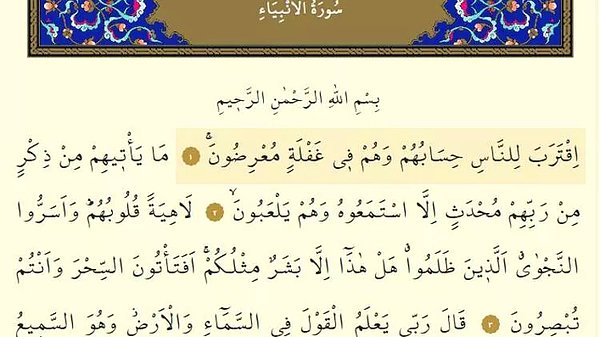 سُورَةُ الْاَنْبِيَاءِ
بِسْمِ اللهِ الرَّحْمٰنِ الرَّح۪يمِ
اِقْتَرَبَ لِلنَّاسِ حِسَابُهُمْ وَهُمْ ف۪ي غَفْلَةٍ مُعْرِضُونَۚ ﴿١﴾ مَا يَأْت۪يهِمْ مِنْ ذِكْرٍ
مِنْ رَبِّهِمْ مُحْدَثٍ اِلَّا اسْتَمَعُوهُ وَهُمْ يَلْعَبُونَۙ ﴿٢﴾ لَاهِيَةً قُلُوبُهُمْۜ وَاَسَرُّوا
النَّجْوٰىۗ اَلَّذ۪ينَ ظَلَمُواۗ هَلْ هٰذَٓا اِلَّا بَشَرٌ مِثْلُكُمْۚ اَفَتَأْتُونَ السِّحْرَ وَاَنْتُمْ
تُبْصِرُونَ ﴿٣﴾ قَالَ رَبّ۪ي يَعْلَمُ الْقَوْلَ فِي السَّمَٓاءِ وَالْاَرْضِۘ وَهُوَ السَّم۪يعُ